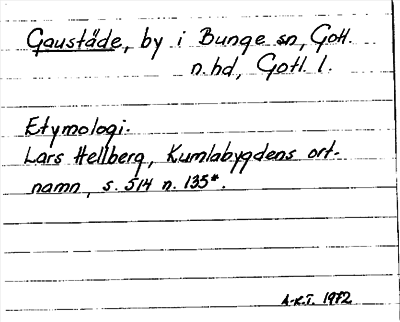 Gaustäde, by i Bunge sn, Gotl.
n. hd, Gotl. l.
Etymologi.
Lars Hellberg, Kumlabygdens ort-
namn, s. 514 n. 135*.
A-K.T. 1972